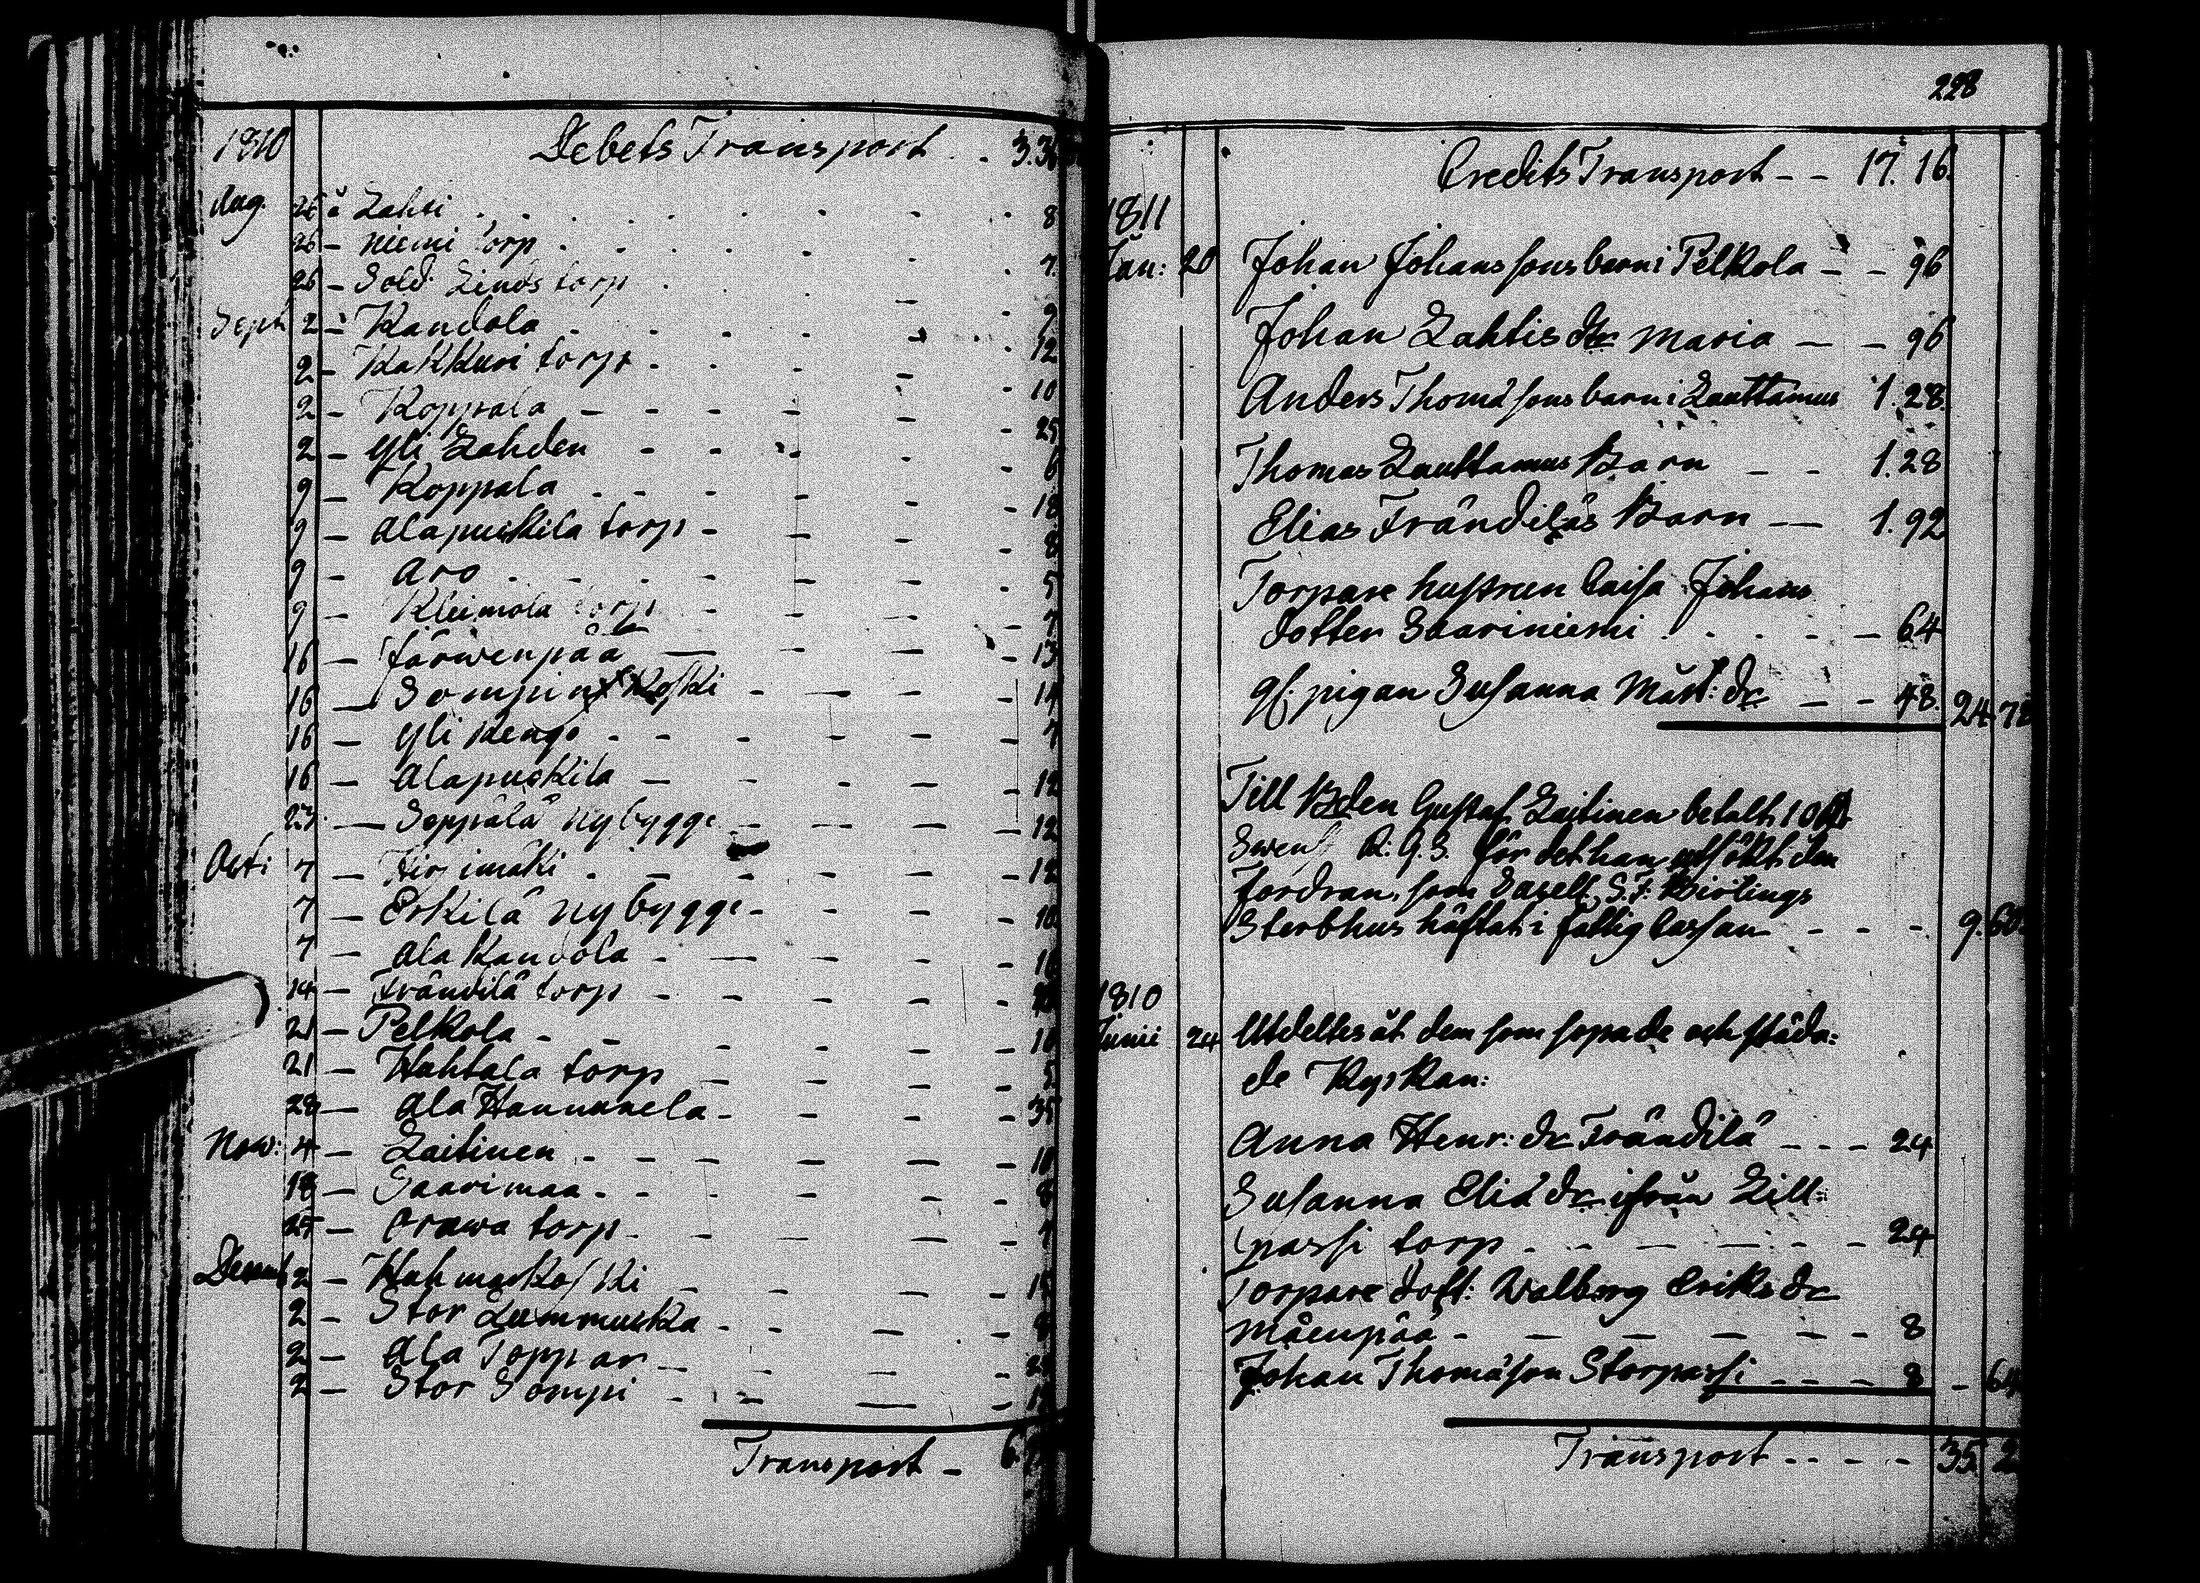 1810 Debets Transport . . 3.3
Aug. 26 å Lahti . . . . . . . . 8
26 – Niemi torp . . . . . . . 7.
26 – Sold: Linds torp . . . 9
Sept 2 – Kandola . . . . . . 12
2 – Kakkuri torp . . . – – 10
2 – Koppala – – – – – – 25
2 – Yli Lahden – – – – – 6
9 – Koppala . . . – – – 18
9 – Alapuskila torp – – – – 8
9 – Aro . . . – – – – 5
9 – Kleimola torp – – – – 7
16 – Järwenpää – – – – – 13
16 – Sompin Koski – – – – 14
16 – Yli Rengo . – – – – 7
16 – Alapuskila – – – – – 12
23 – Seppälä nybygge – – – – 12
Oct: 7 – Hirsimäki . – – – – 12
7 – Erkilä nybygge – – – – 10
7 – Ala Kandola – – – – –
14 – Frändilä torp – – – – –
21 – Pelkola – – – – – –
21 – Huhtala torp – – – – – 5
28 – Ala Hannukela – – – – 35
Now: 4 – Laitinen – – – – –
18 – Saarimaa – – – – – 8
25 – Orawa torp – – – – – 4
Decemb 2 – Hahmarkoski – – – –
2 – Stor Lummukka – – – –
2 – Ala Toppar – – – –
2 – Stor Sompi – – – –
Transport – 6.
228
Credits Transport – – 17. 16.
1811
Jan: 20 Johan Johanssons barn i Pelkola – – 96
Johan Lahtis dr Maria – – 96
Anders Thomäsons barn i Lauttamus 1. 28.
Thomas Lauttamus Barn – – 1. 28
Elias Frändiläs Barn – – 1. 92
Torpare hustrun Caisa Johans
dotter Saariniemi . . . . – 64
gl. pigan Susanna Mårt: dr – – 48. 24 78
Till Bden Gustaf Laitinen betalt 10
Swensk R: G. S. för det han utsökt den
fordran, som Capell. S. J: Birlings
Sterbhus häftat i fattig Cassan – – – 9. 60.
1810
Junii 24 Utdeltes åt dem som sopade och städa:
de Kyrkan:
Anna Henr: dr Frändilä – – – 24
Susanna Eliä dr ifrån Lill:
passi torp – – – – – – 24
Torpare dott: Walborg Eriks dr
Mäenpää – – – – – – 8
Johan Thomäson Storpassi – – – – 8 – 64
Transport – – – – 35. 2